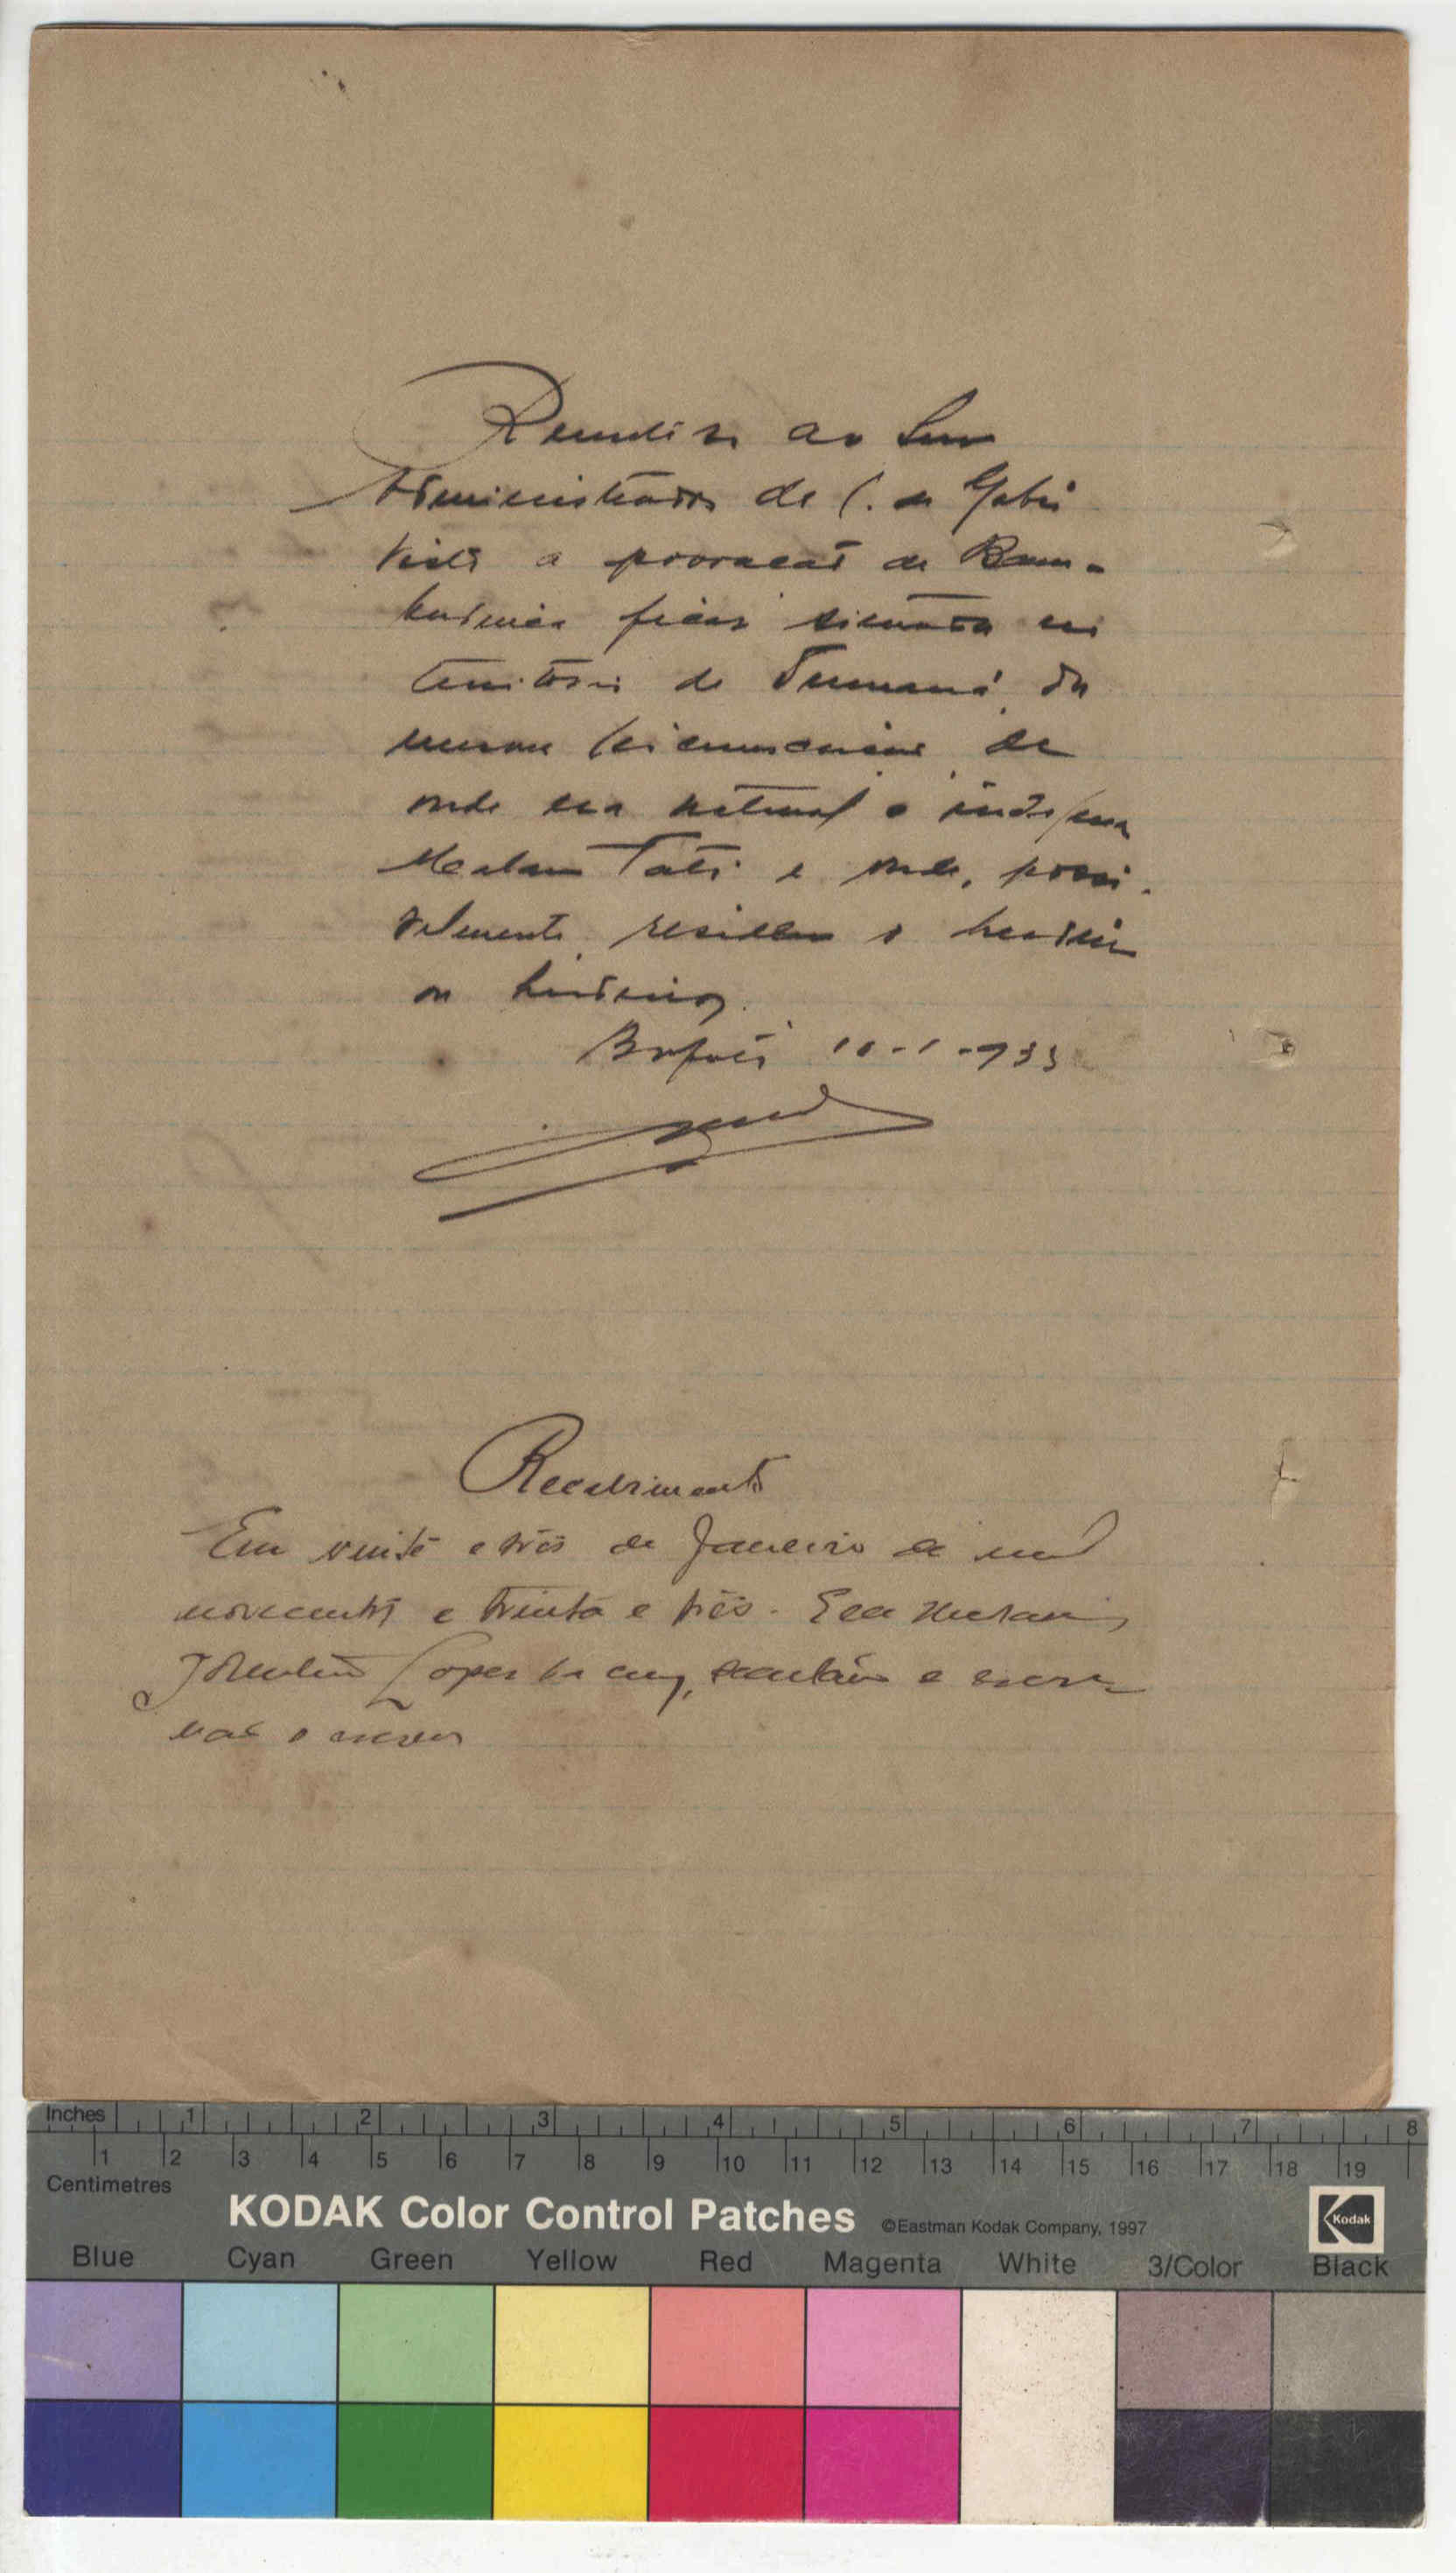 Remeti-se ao Snr
Administrador de C. de Gabú
Visto a povoação de Bam-
badinca ficar situada no
territorio de Tumaná, da
mesma Circunscrição de
onde era natural o indigena
Malam Tali e onde, possi-
velmente residem o herdeiro
ou herdeiros.
Bafatá 10-1-933
Recebimento
Em vinte e três de Janeiro de mil
novecentos e trinta e três. Eu
Lopes secretário e escri-
vão o escrevi
Inches 1 2 3 4 5 6 7 8
1 2 3 4 5 6 7 8 9 10 11 12 13 14 15 16 17 18 19
Centimetres
KODAK Color Control Patches ©Eastman Kodak Company, 1997 Kodak
Blue Cyan Green Yellow Red Magenta White 3/Color Black